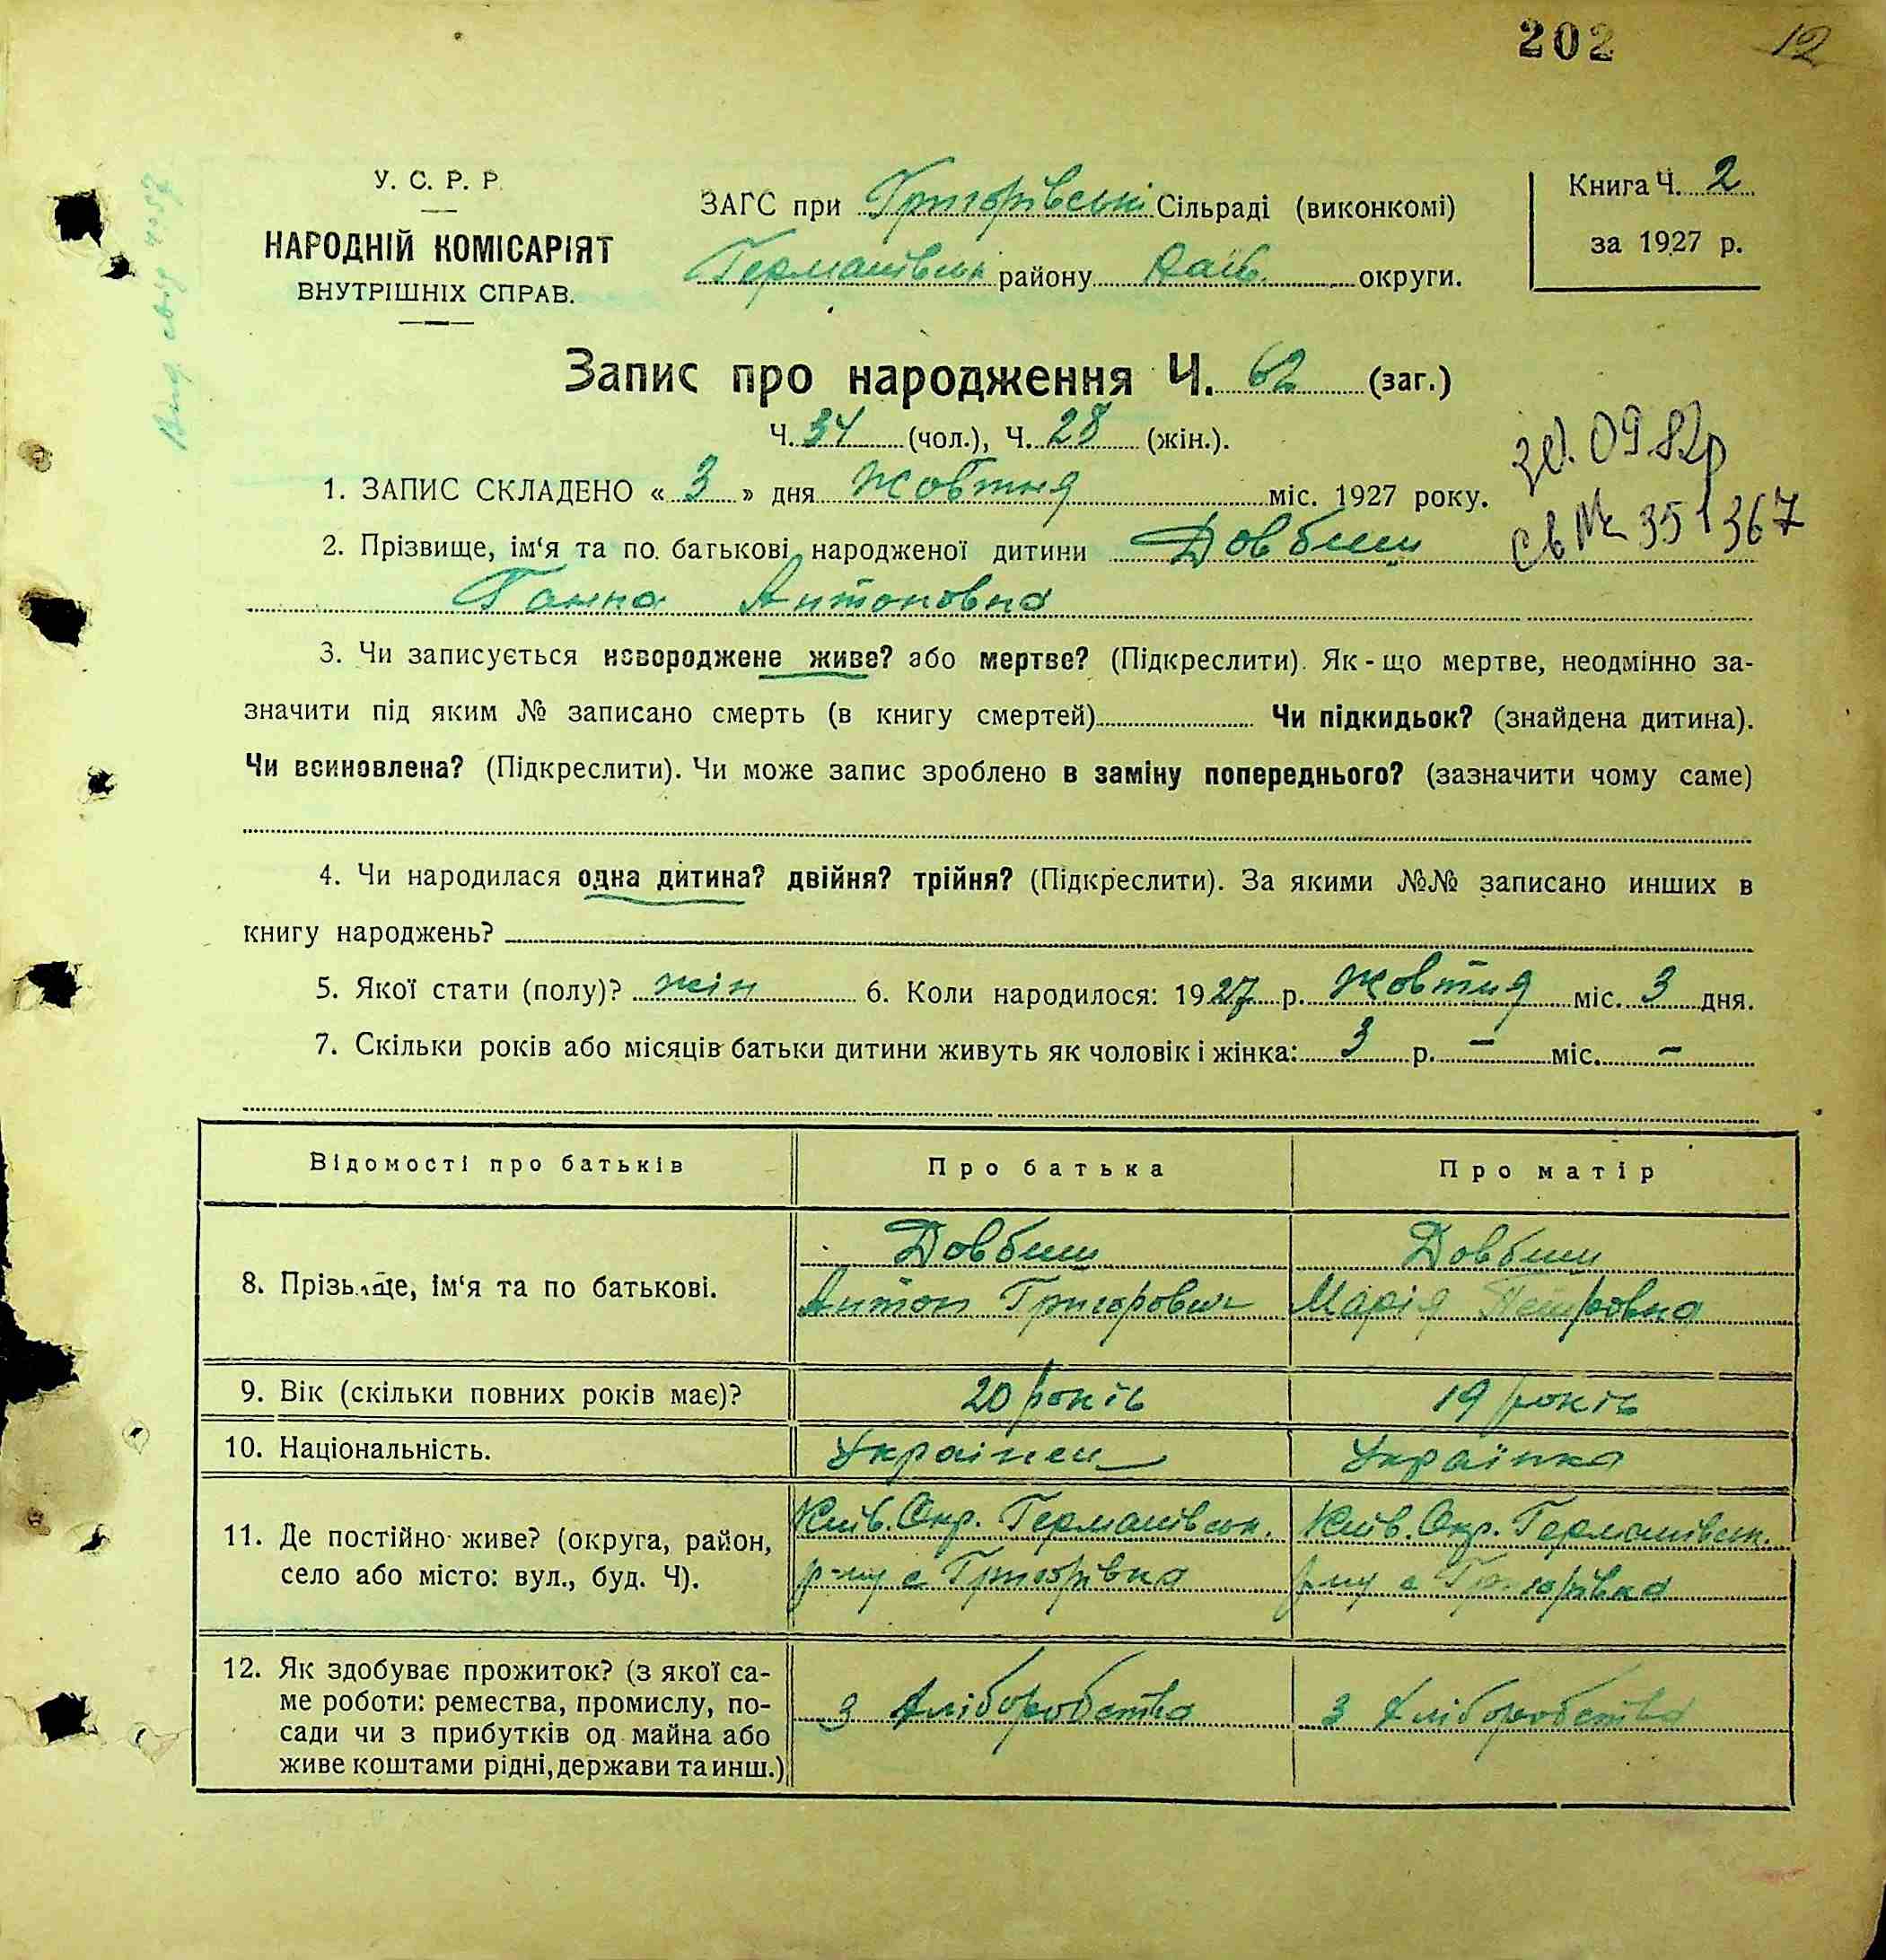 202 12
У. С. Р. Р.
НАРОДНІЙ КОМІСАРІЯТ
ВНУТРІШНІХ СПРАВ.
ЗАГС при Григорівській Сільраді (виконкомі)
Германівськ району округи.
Книга Ч. 2
за 1927 р.
Запис про народження Ч. 62 (заг.)
Ч. 34 (чол.), Ч. 28 (жін.).
30.09.82р
св № 351367
1. ЗАПИС СКЛАДЕНО « 3 » дня Жовтня міс. 1927 року.
2. Прізвище, ім‘я та по батькові народженої дитини Довбиш
Ганна Антоновна
3. Чи записується новороджене живе? або мертве? (Підкреслити). Як-що мертве, неодмінно за-
значити під яким № записано смерть (в книгу смертей) Чи підкидьок? (знайдена дитина).
Чи всиновлена? (Підкреслити). Чи може запис зроблено в заміну попереднього? (зазначити чому саме)
4. Чи народилася одна дитина? двійня? трійня? (Підкреслити). За якими №№ записано инших в
книгу народжень?
5. Якої стати (полу)? жін 6. Коли народилося: 1927 р. Жовтня міс. 3 дня.
7. Скільки років або місяців батьки дитини живуть як чоловік і жінка: 3 р. – міс. –
Відомості про батьків Про батька Про матір
8. Прізвище, ім‘я та по батькові.
Довбиш
Антон Григорович
Довбиш
Марія Петровна
9. Вік (скільки повних років має)? 20 років 19 років
10. Національність. Українец Українка
11. Де постійно живе? (округа, район,
село або місто: вул., буд. Ч).
Київ. Окр. Германівськ.
р-ну с Григорівка
Київ. Окр. Германівськ.
р-ну с Григорівка
12. Як здобуває прожиток? (з якої са-
ме роботи: ремества, промислу, по-
сади чи з прибутків од майна або
живе коштами рідні, держави та инш.)
З Хліборобства
З Хліборобства